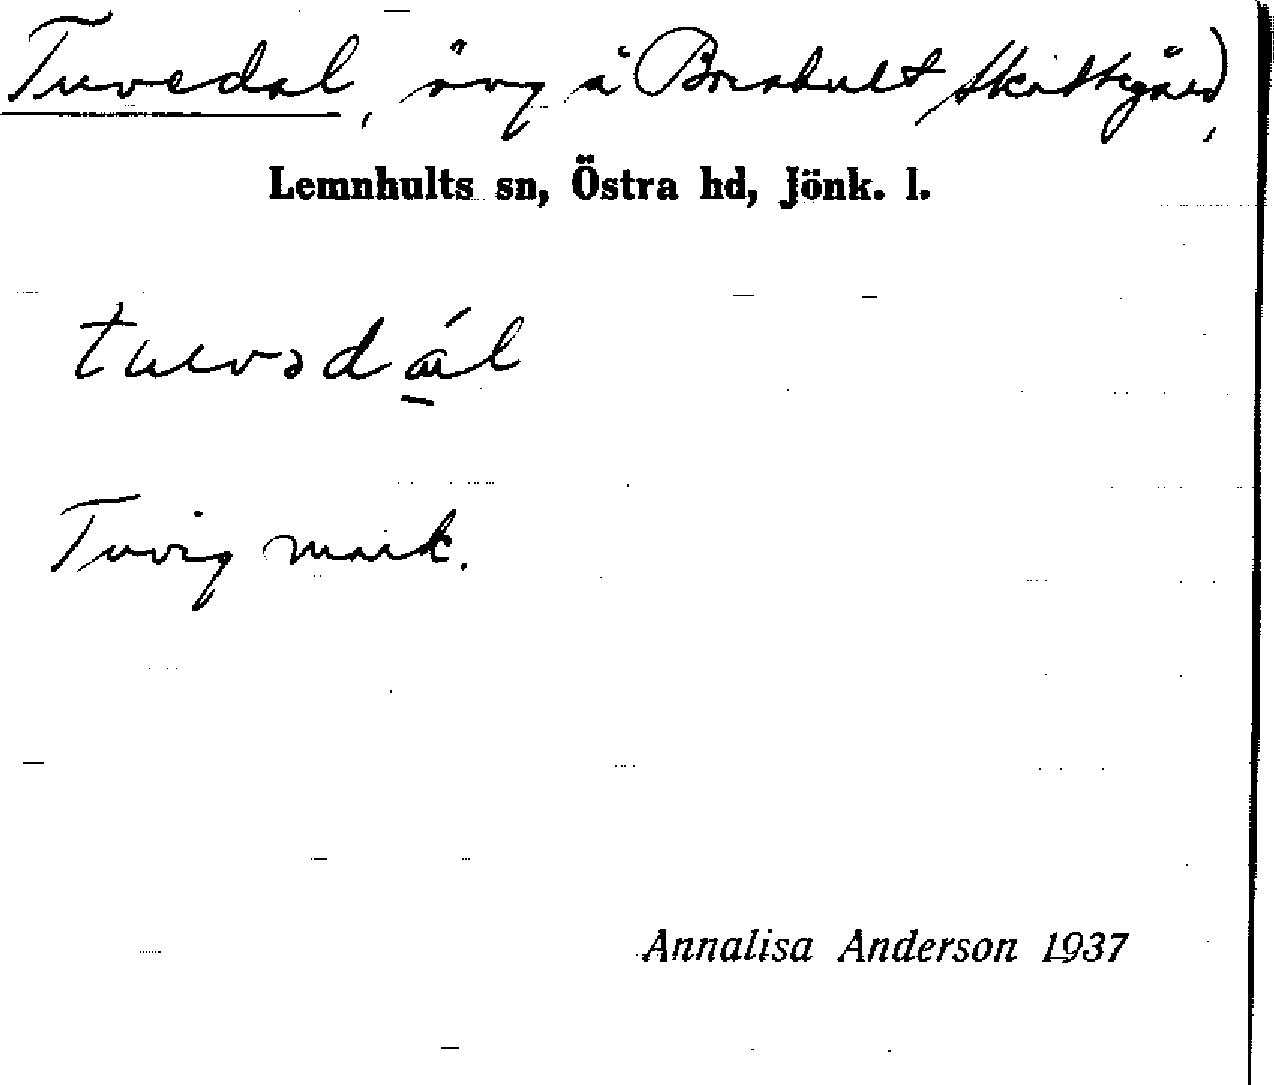 Tuvedal, äng å Brahult Skattegård,
Lemnhults sn, Östra hd, Jönk. l.
tuvədál
Tuvig mark.
Annalisa Anderson 1937